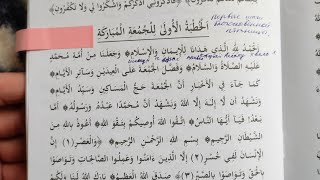 فَاذْكُرُونِي أَذْكُرْكُمْ وَاشْكُرُوا لِي وَلَا تَكْفُرُونِ
اَلْخُطْبَةُ الْأُولَى لِلْجُمْعَةِ الْمُبَارَكَةِ
اَلْحَمْدُ لِلَّهِ الَّذِي هَدَانَا لِلْإِيمَانِ وَالْإِسْلَامِ ۞ وَجَعَلَنَا مِنْ أُمَّةِ مُحَمَّدٍ
عَلَيْهِ الصَّلَاةُ وَالسَّلَامُ ۞ وَفَضَّلَ الْجُمْعَةَ عَلَى الْعِيدَيْنِ وَسَائِرِ الْأَيَّامِ ۞
كَمَا جَاءَ فِي الْأَخْبَارِ أَنَّ الْجُمْعَةَ حَجُّ الْمَسَاكِينِ وَسَيِّدُ الْأَيَّامِ ۞
وَنَشْهَدُ أَنْ لَا إِلَهَ إِلَّا اللَّهُ وَنَشْهَدُ أَنَّ مُحَمَّدًا عَبْدُهُ وَرَسُولُهُ ۞ أَمَّا
بَعْدُ فَيَا أَيُّهَا النَّاسُ ۞ اتَّقُوا اللَّهَ أُوصِيكُمْ بِتَقْوَى اللَّهِ ۞ أَعُوذُ بِاللَّهِ مِنَ
الشَّيْطَانِ الرَّجِيمِ ۞ بِسْمِ اللَّهِ الرَّحْمَنِ الرَّحِيمِ ۞ وَالْعَصْرِ(١) إِنَّ
الْإِنْسَانَ لَفِي خُسْرٍ(٢) إِلَّا الَّذِينَ آمَنُوا وَعَمِلُوا الصَّالِحَاتِ وَتَوَاصَوْا
بِالْحَقِّ وَتَوَاصَوْا بِالصَّبْرِ(٣) ۞ بَارَكَ اللَّهُ لَنَا وَلَكُمْ